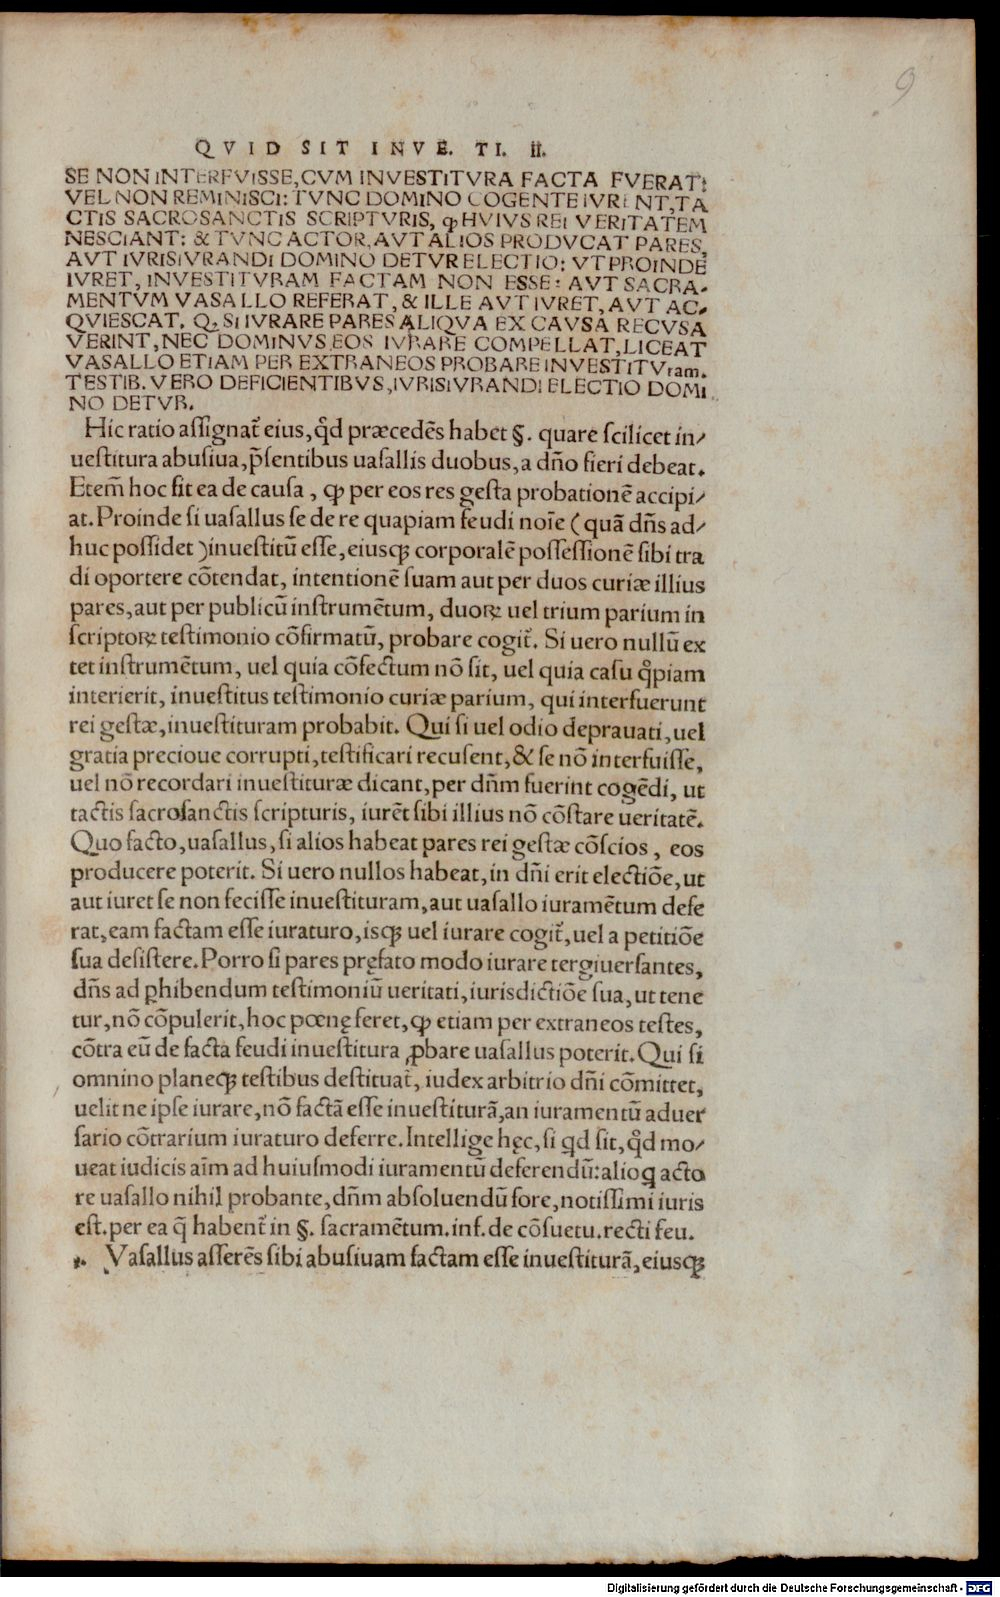 9
QVID SIT INVE. TI. II.
SE NON INTERFVISSE, CVM INVESTITVRA FACTA FVERAT:
VEL NON REMINISCI: TVNC DOMINO COGENTE IVRENT, TA
CTIS SACROSANCTIS SCRIPTVRIS, ꝙ HVIVS REI VERITATEM
NESCIANT: & TVNC ACTOR, AVT ALIOS PRODVCAT PARES,
AVT IVRISIVRANDI DOMINO DETVR ELECTIO: VT PROINDE
IVRET, INVESTITVRAM FACTAM NON ESSE: AVT SACRA-
MENTVM VASALLO REFERAT, & ILLE AVT IVRET, AVT AC-
QVIESCAT. Q, SI IVRARE PARES ALIQVA EX CAVSA RECVSA
VERINT, NEC DOMINVS EOS IVRARE COMPELLAT, LICEAT
VASALLO ETIAM PER EXTRANEOS PROBARE INVESTITVram.
TESTIB. VERO DEFICIENTIBVS, IVRISIVRANDI ELECTIO DOMI
NO DETVR.
Hic ratio assignat᷑ eius, qd̓ præcedẽs habet §. quare scilicet in/
uestitura abusiua, p̃sentibus uasallis duobus, a dño fieri debeat.
Etem̃ hoc sit ea de causa, ꝙ per eos res gesta probationẽ accipi/
at. Proinde si uasallus se de re quapiam feudi noĩe (quã dñs ad/
huc possidet) inuestitũ esse, eiusqꝫ corporalẽ possessionẽ sibi tra
di oportere cõtendat, intentionẽ suam aut per duos curiæ illius
pares, aut per publicũ instrumẽtum, duoꝝ uel trium parium in
scriptoꝝ testimonio cõfirmatũ, probare cogit᷑. Si uero nullũ ex
tet instrumẽtum, uel quia cõfectum nõ sit, uel quia casu qͥpiam
interierit, inuestitus testimonio curiæ parium, qui interfuerunt
rei gestæ, inuestituram probabit. Qui si uel odio deprauati, uel
gratia precioue corrupti, testificari recusent, & se nõ interfuisse,
uel nõ recordari inuestituræ dicant, per dñm fuerint cogẽdi, ut
tactis sacrosanctis scripturis, iurẽt sibi illius nõ cõstare ueritatẽ.
Quo facto, uasallus, si alios habeat pares rei gestæ cõscios, eos
producere poterit. Si uero nullos habeat, in dñi erit electiõe, ut
aut iuret se non fecisse inuestituram, aut uasallo iuramẽtum defe
rat, eam factam esse iuraturo, isqꝫ uel iurare cogit᷑, uel a petitiõe
sua desistere. Porro si pares pręfato modo iurare tergiuersantes,
dñs ad ꝓhibendum testimoniũ ueritati, iurisdictiõe sua, ut tene
tur, nõ cõpulerit, hoc pœnę feret, ꝙ etiam per extraneos testes,
cõtra eũ de facta feudi inuestitura ꝓbare uasallus poterit. Qui si
omnino planeqꝫ testibus destituat᷑, iudex arbitrio dñi cõmittet,
uelit ne ipse iurare, nõ factã esse inuestiturã, an iuramentũ aduer
sario cõtrarium iuraturo deferre. Intellige hęc, si qd sit, qd̓ mo/
ueat iudicis aĩm ad huiusmodi iuramentũ deferendũ: alioq acto
re uasallo nihil probante, dñm absoluendũ fore, notissimi iuris
est. per ea q̃ habent᷑ in §. sacramẽtum. inf. de cõsuetu. recti feu.
Vasallus asserẽs sibi abusiuam factam esse inuestiturã, eiusqꝫ
Digitalisierung gefördert durch die Deutsche Forschungsgemeinschaft - DFG